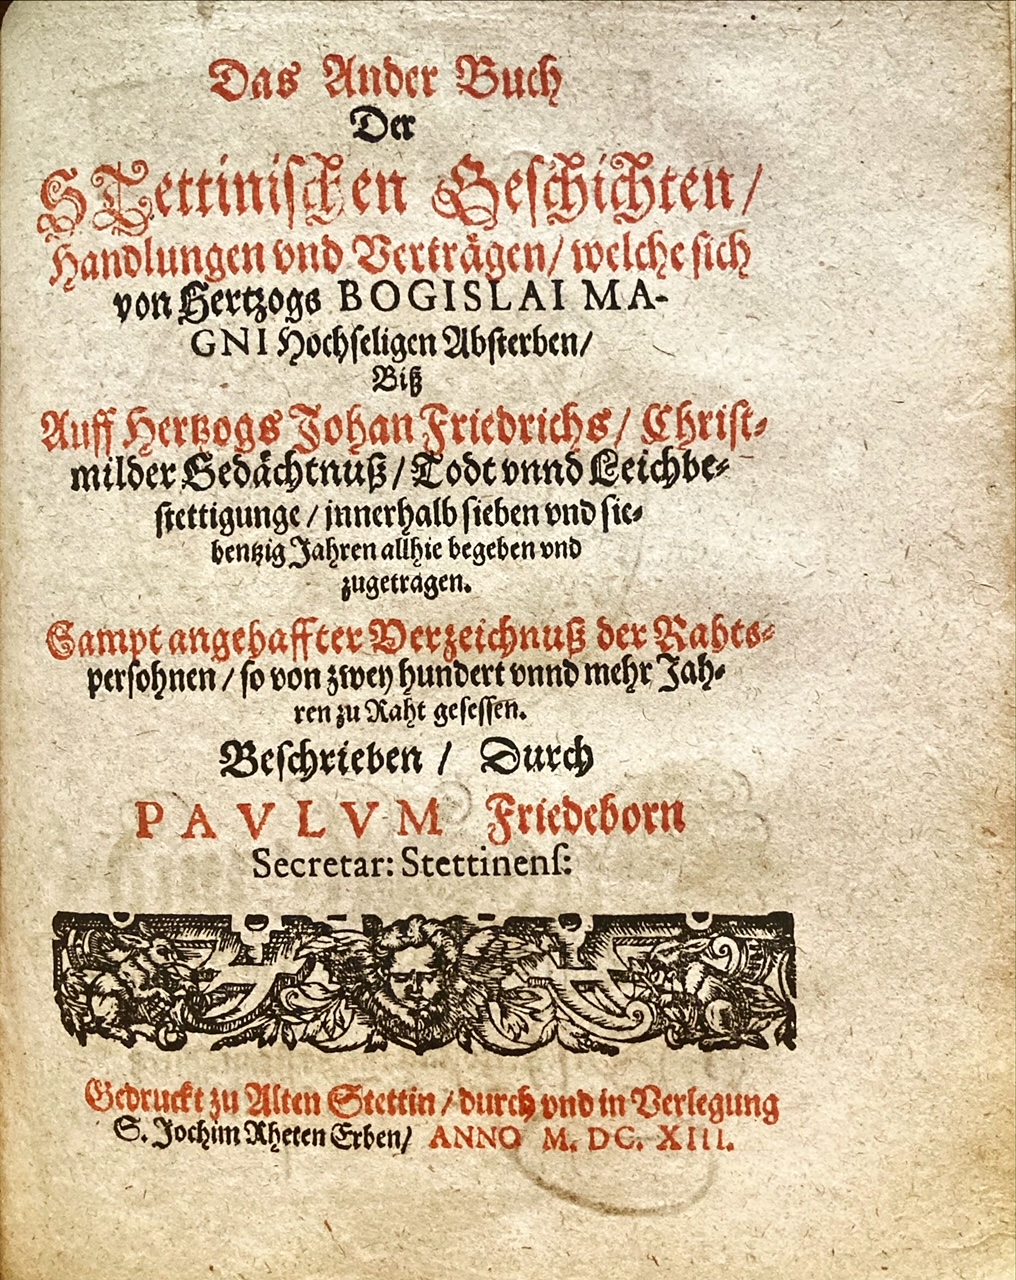 Das Ander Buch
Der
STettinischen Geschichten/
Handlungen vnd Verträgen/ welche sich
von Hertzogs BOGISLAI MA-
GNI Hochseligen Absterben/
Biß
Auff Hertzogs Johan Friedrichs/ Christ-
milder Gedächtnuß/ Todt vnnd Leichbe-
stettigunge/ jnnerhalb sieben vnd sie-
bentzig Jahren allhie begeben vnd
zugetragen.
Sampt angehaffter Verzeichnuß der Rahts-
persohnen/ so von zwey hundert vnnd mehr Jah-
ren zu Raht gesessen.
Beschrieben/ Durch
PAVLVM Friedeborn
Secretar: Stettinens:
Gedruckt zu Alten Stettin/ durch vnd in Verlegung
S. Jochim Rheten Erben/ ANNO M. DC. XIII.